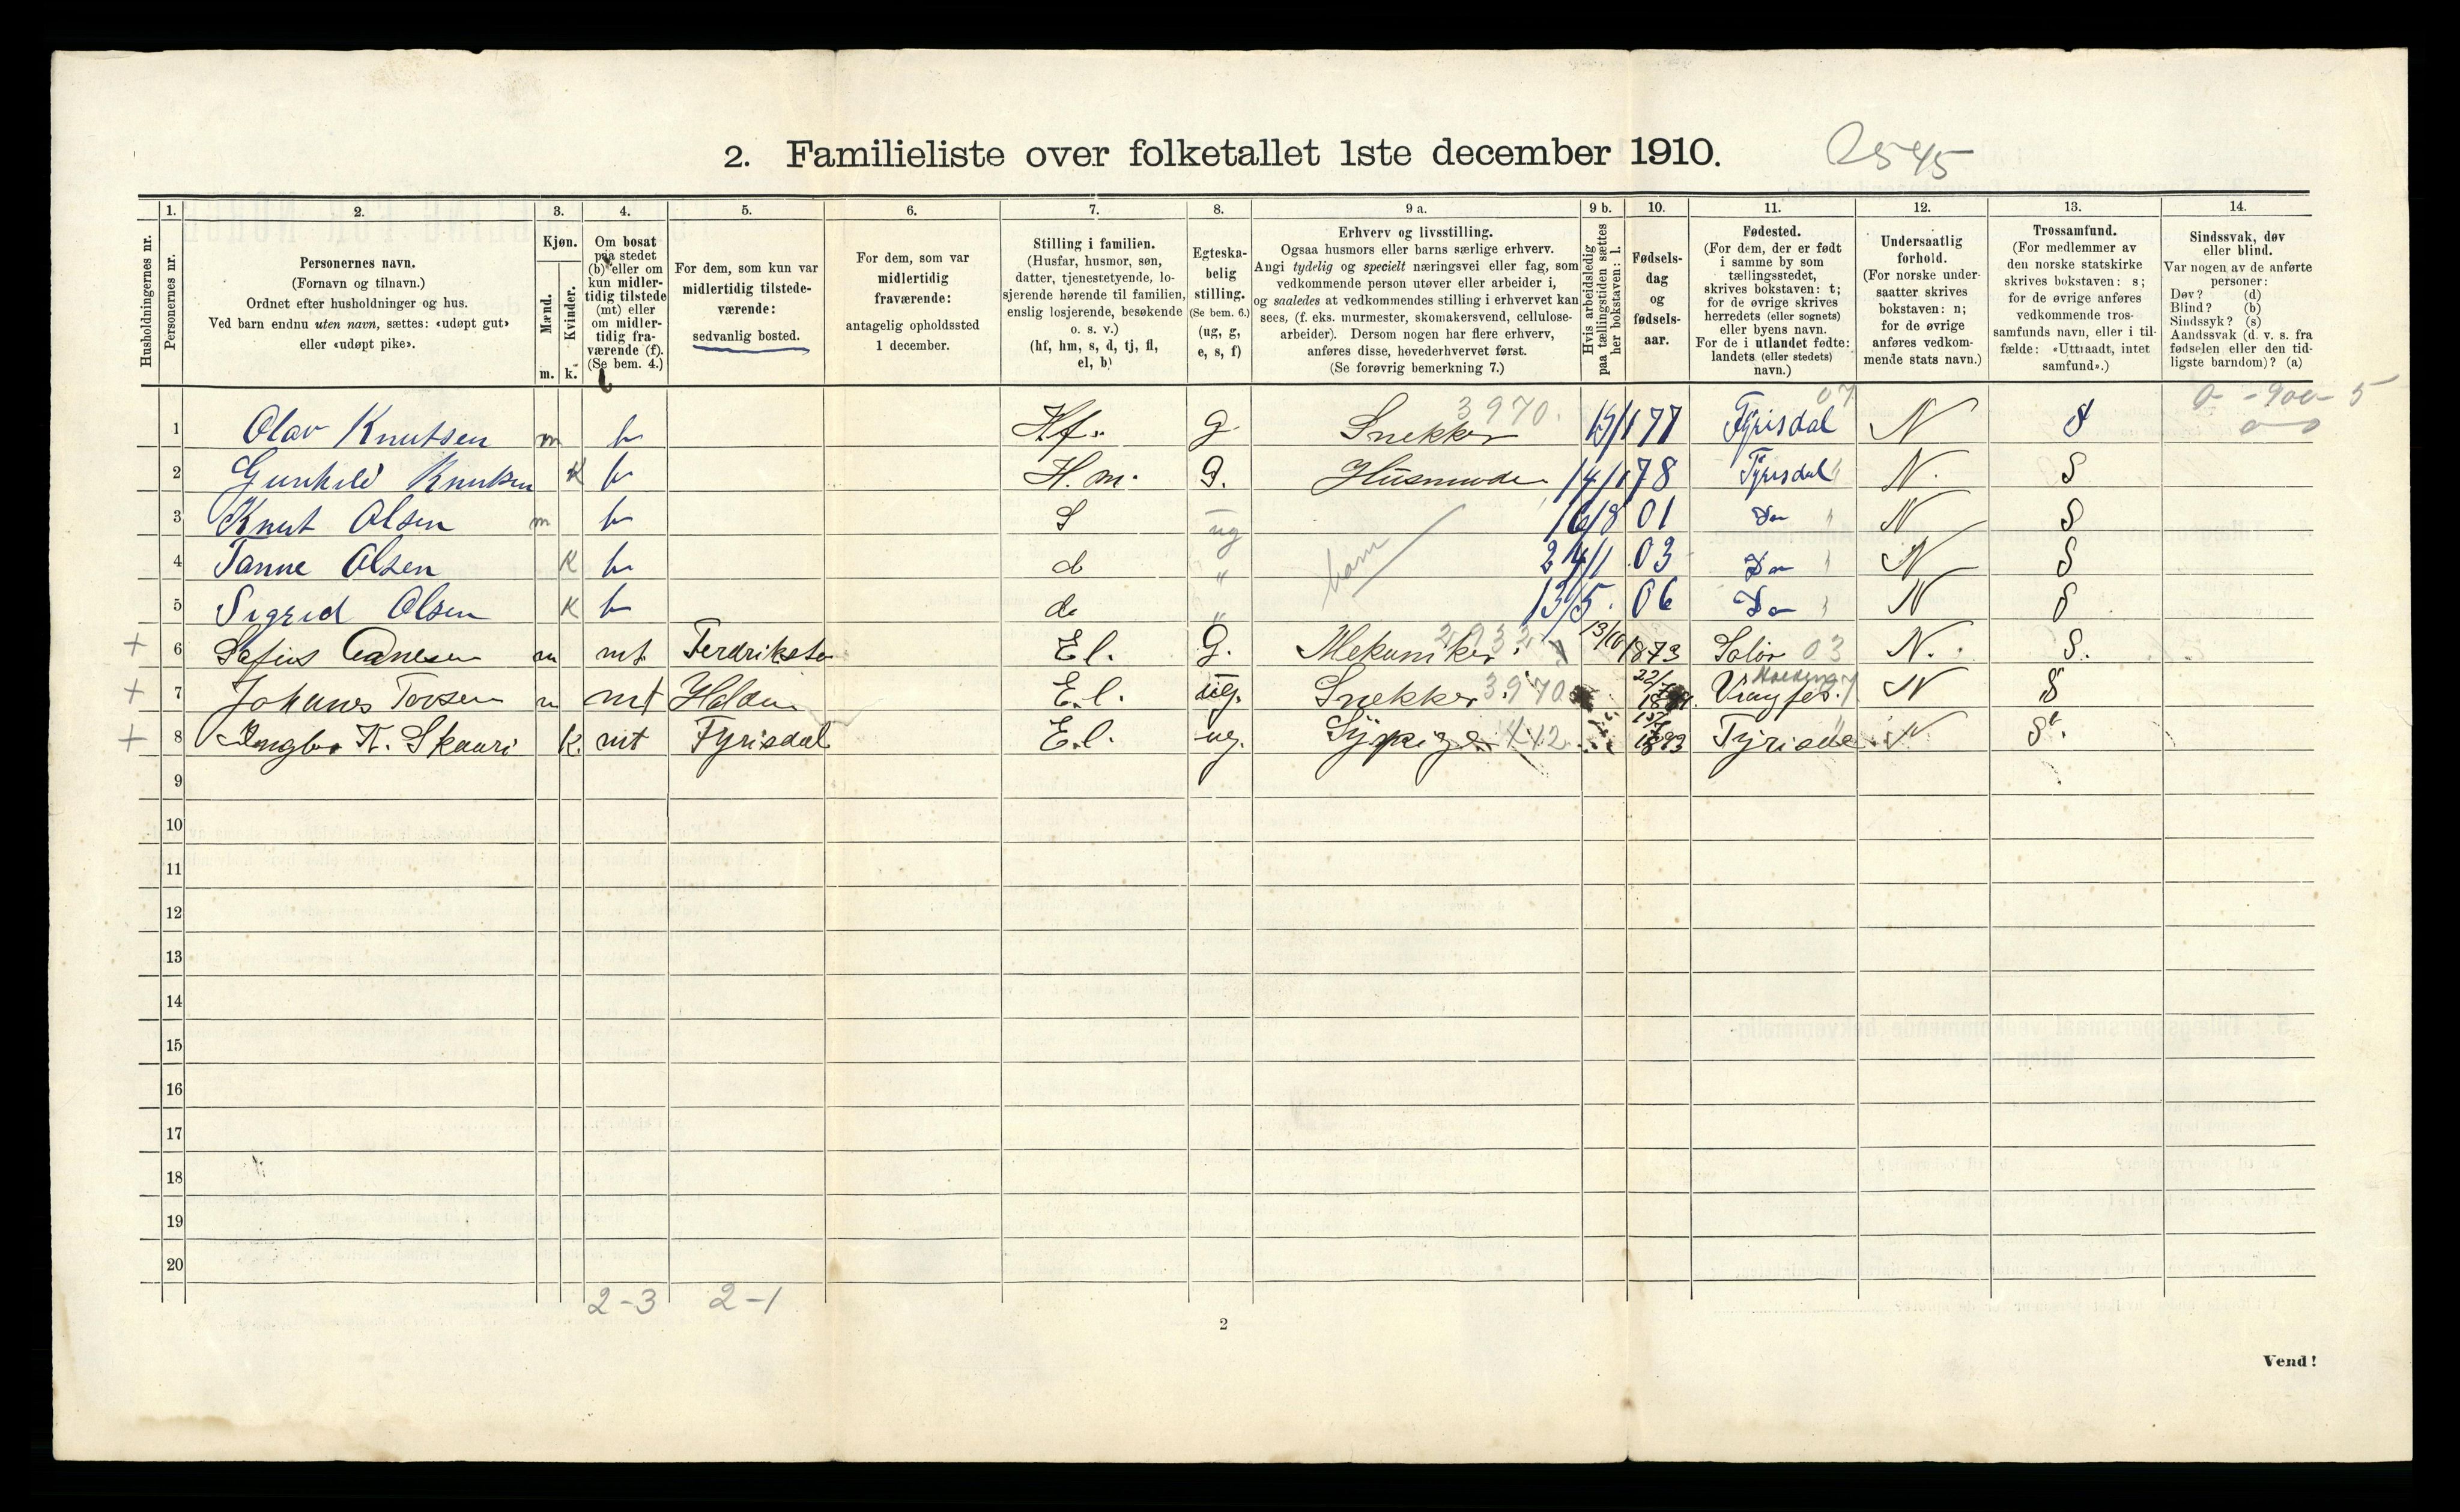 2. Familieliste over folketallet 1ste december 1910. 2545
Husholdningernes nr.
1. Personernes nr.
2. Personernes navn. (Fornavn og tilnavn.) Ordnet efter husholdninger og hus. Ved barn endnu uten navn, sættes: «udøpt gut» eller «udøpt pike».
3. Kjøn. Mænd. m. Kvinder. k.
4. Om bosat paa stedet (b) eller om kun midlertidig tilstede (mt) eller om midlertidig fraværende (f). (Se bem. 4.) b
5. For dem, som kun var midlertidig tilstedeværende: sedvanlig bosted.
6. For dem, som var midlertidig fraværende: antagelig opholdssted 1 december.
7. Stilling i familien. (Husfar, husmor, søn, datter, tjenestetyende, losjerende hørende til familien, enslig losjerende, besøkende o. s. v.) (hf, hm, s, d, tj, fl, el, b)
8. Egteskabelig stilling. (Se bem. 6.) (ug, g, e, s, f)
9 a. Erhverv og livsstilling. Ogsaa husmors eller barns særlige erhverv. Angi tydelig og specielt næringsvei eller fag, som vedkommende person utøver eller arbeider i, og saaledes at vedkommendes stilling i erhvervet kan sees, (f. eks. murmester, skomakersvend, cellulosearbeider). Dersom nogen har flere erhverv, anføres disse, hovederhvervet først. (Se forøvrig bemerkning 7.)
9 b. Hvis arbeidsledig paa tællingstiden sættes her bokstaven: l.
10. Fødselsdag og fødselsaar.
11. Fødested. (For dem, der er født i samme by som tællingsstedet, skrives bokstaven: t; for de øvrige skrives herredets (eller sognets) eller byens navn. For de i utlandet fødte: landets (eller stedets) navn.)
12. Undersaatlig forhold. (For norske undersaatter skrives bokstaven: n; for de øvrige anføres vedkommende stats navn.)
13. Trossamfund. (For medlemmer av den norske statskirke skrives bokstaven: s; for de øvrige anføres vedkommende trossamfunds navn, eller i tilfælde: «Uttraadt, intet samfund».)
14. Sindssvak, døv eller blind. Var nogen av de anførte personer: Døv? (d) Blind? (b) Sindssyk? (s) Aandssvak (d. v. s. fra fødselen eller den tidligste barndom)? (a)
1 Olav Knutsen m b Hf. g. Snekker 3970. 19/1 77 Fyrisdal 07 N S 0 - 900 - 5
2 Gunhild Knutsen K b H. m. G. Husmoder 14/1 78 Fyrisdal N. S
3 Knut Olsen m b S ug 16/8 01 Do N S
4 Tanne Olsen K b d " barn 24/1 03 Do N S
5 Sigrid Olsen K b d " 13/5. 06 Do N S
+ 6 m mt Ferdriksta El. G. Mekaniker 13/10 1873 Solør 03 N. S.
+ 7 Johanes Tovsen m mt Halden E.l. ug. Snekker 3970 N S
+ 8 K. Skauri K. mt Fyrisdal E.l. ug. Sypige 442 1893 Fyrisdal N S.
9
10
11
12
13
14
15
16
17
18
19
20
2-3 2-1
2
Vend!